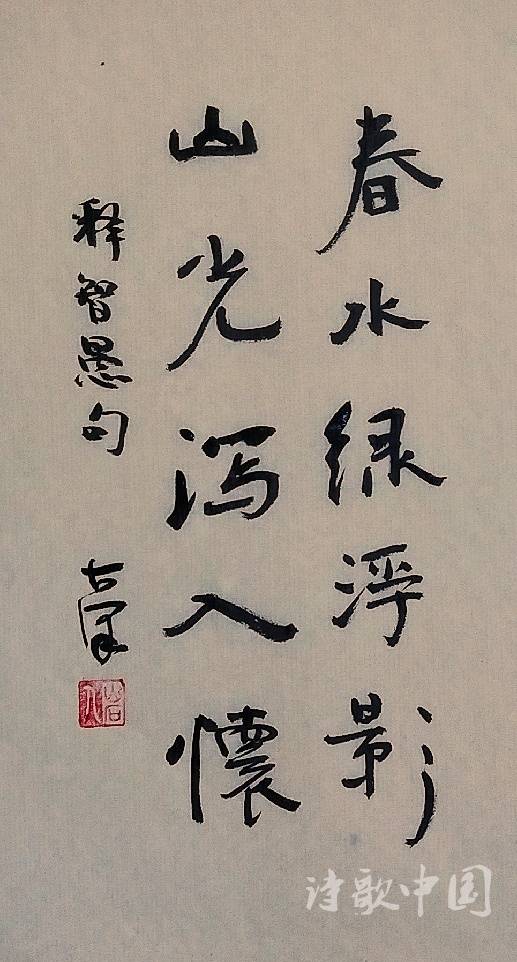 春水绿浮影
山光泻入懷
释智愚句
诗歌中国